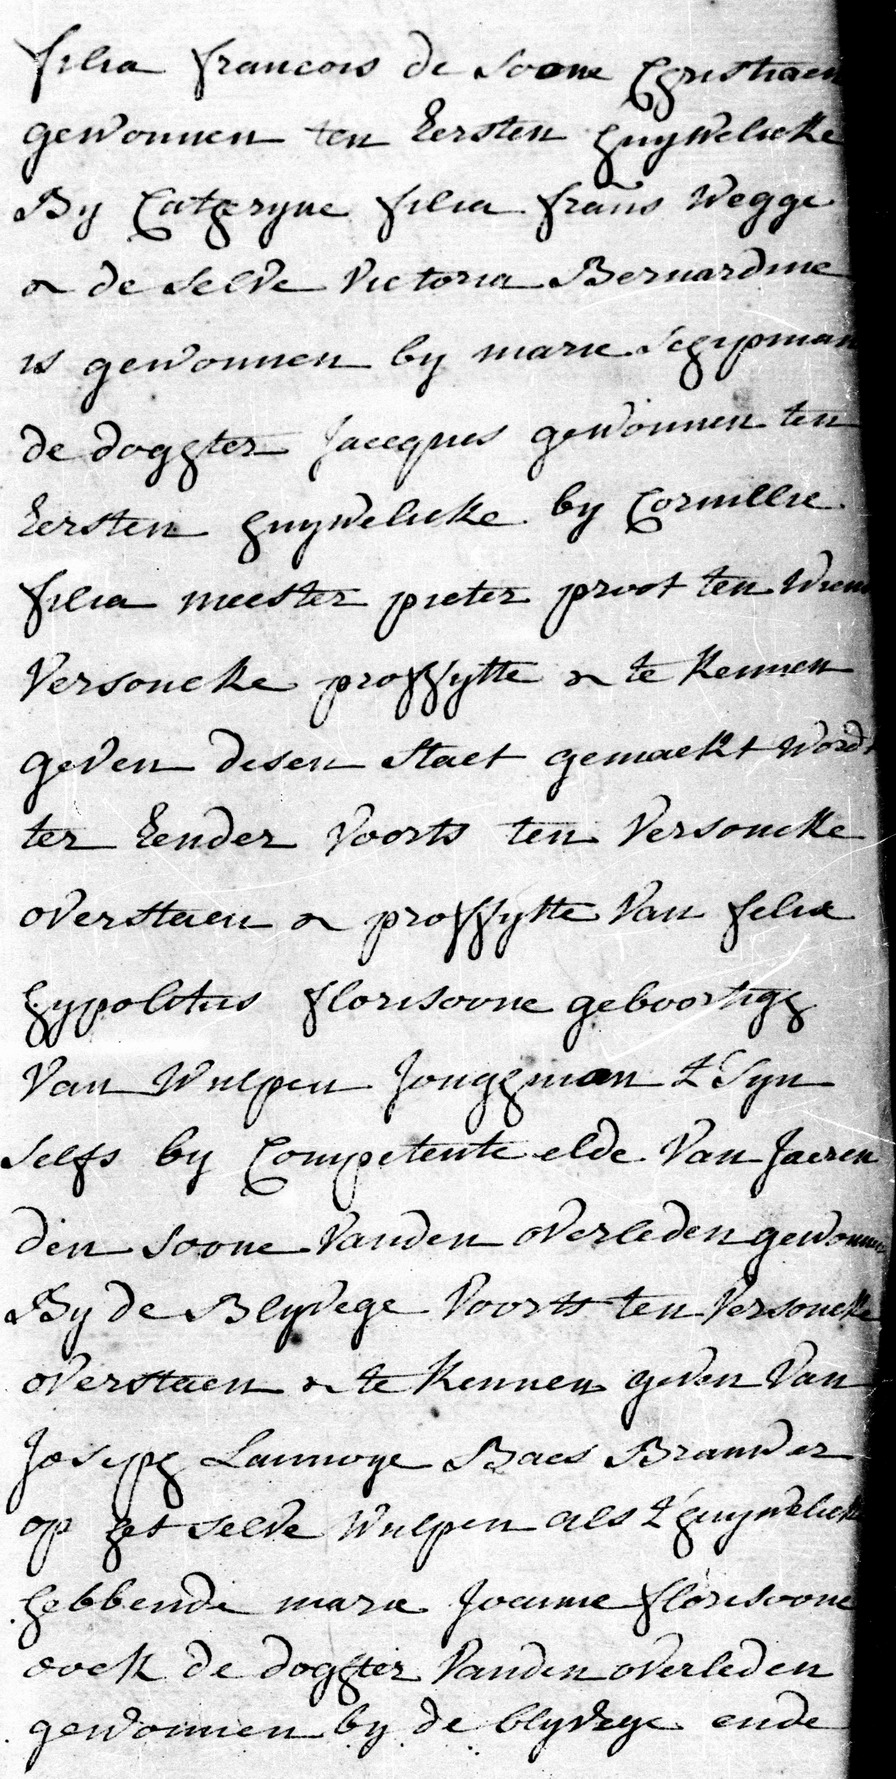 filia francois de soone Christiaen
gewonnen ten Eersten huywelicke
By Catheryne filia frans Wegge
& de selve Victoria Bernardine
is gewonnen by marie schipman
de doghter Jacques gewonnen ten
Eersten huywelicke by Cornelie
filia meester pieter proot ten Wiens
Versoucke proffytte & te kennen
geven desen staet gemaekt Wordt
ter Eender Voorts ten Versoucke
overstaen & proffytte Van felix
hypolitus florisoone geboortigh
Van Wulpen Jonghman t'syn
selfs by Competente elde Van Jaeren
den soone Vanden overleden gewonnen
By de Blyvege Voorts ten Versoucke
overstaen & te kennen geven Van
Joseph Lannoye Baes Brauwer
op het selve Wulpen als t'huywelick
hebbende marie Joanne florisoone
oock de doghter Vanden overleden
gewonnen by de blyvege ende